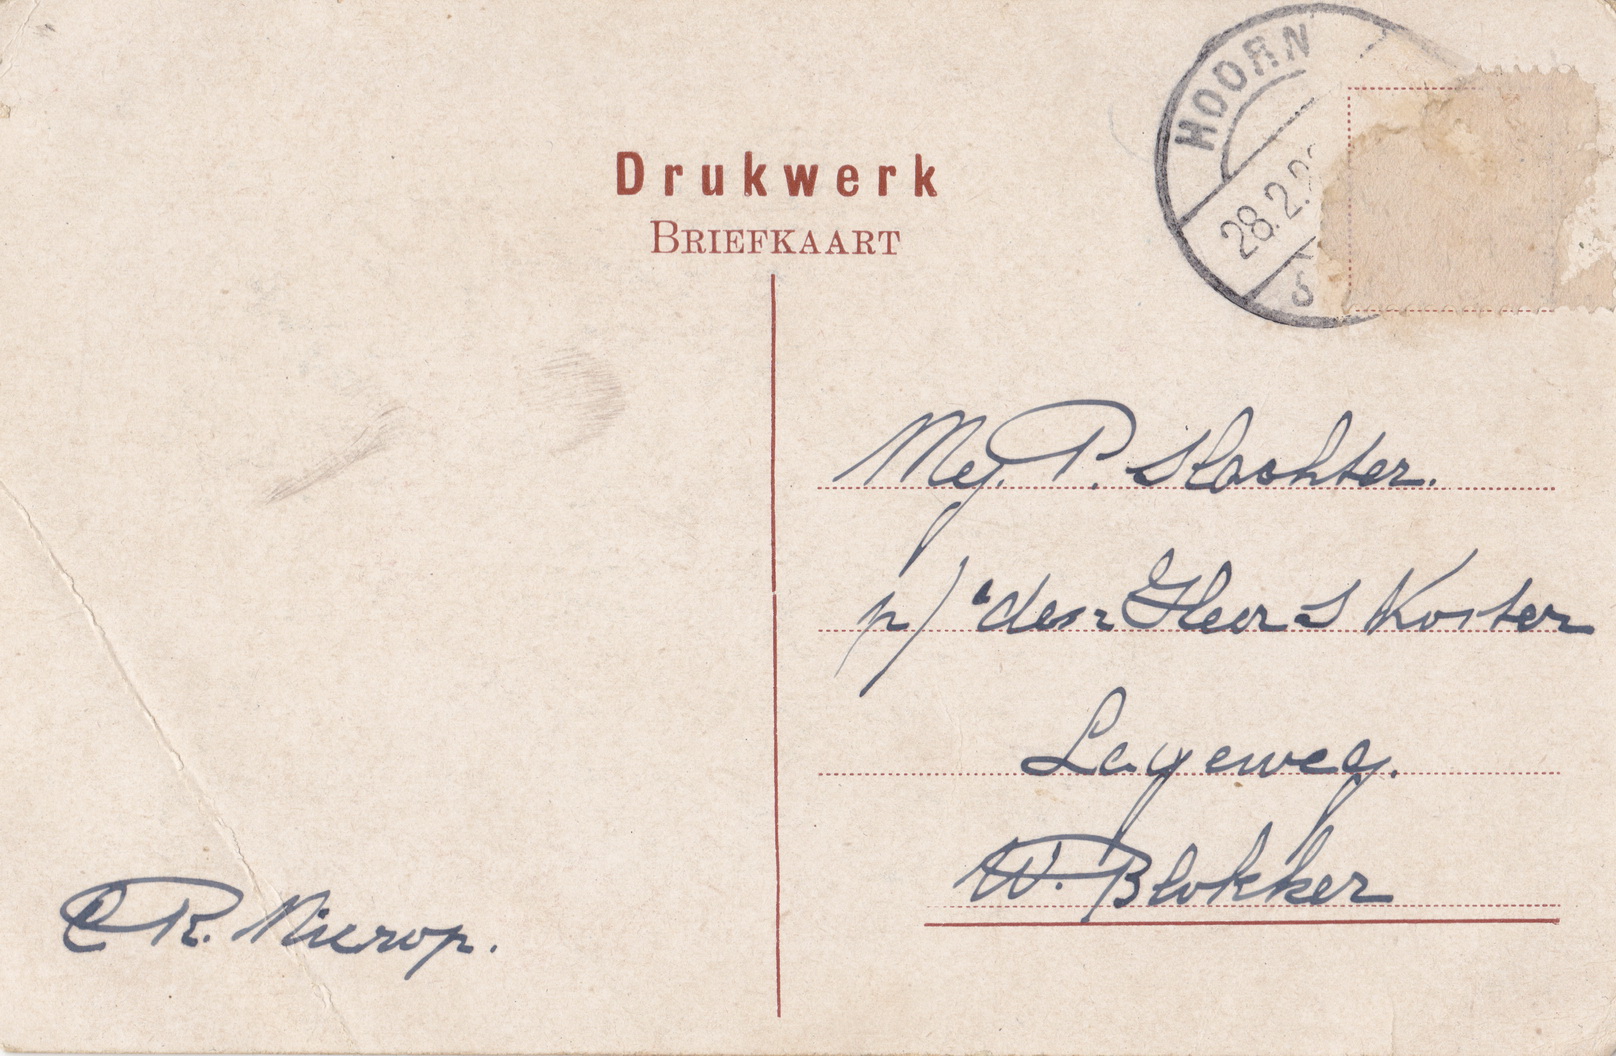 HOORN
28.2.2
Drukwerk
BRIEFKAART
Mej. P. Slachter.
p/a den Heer S Koster
Lageweg.
W. Blokker
C R. Nierop.